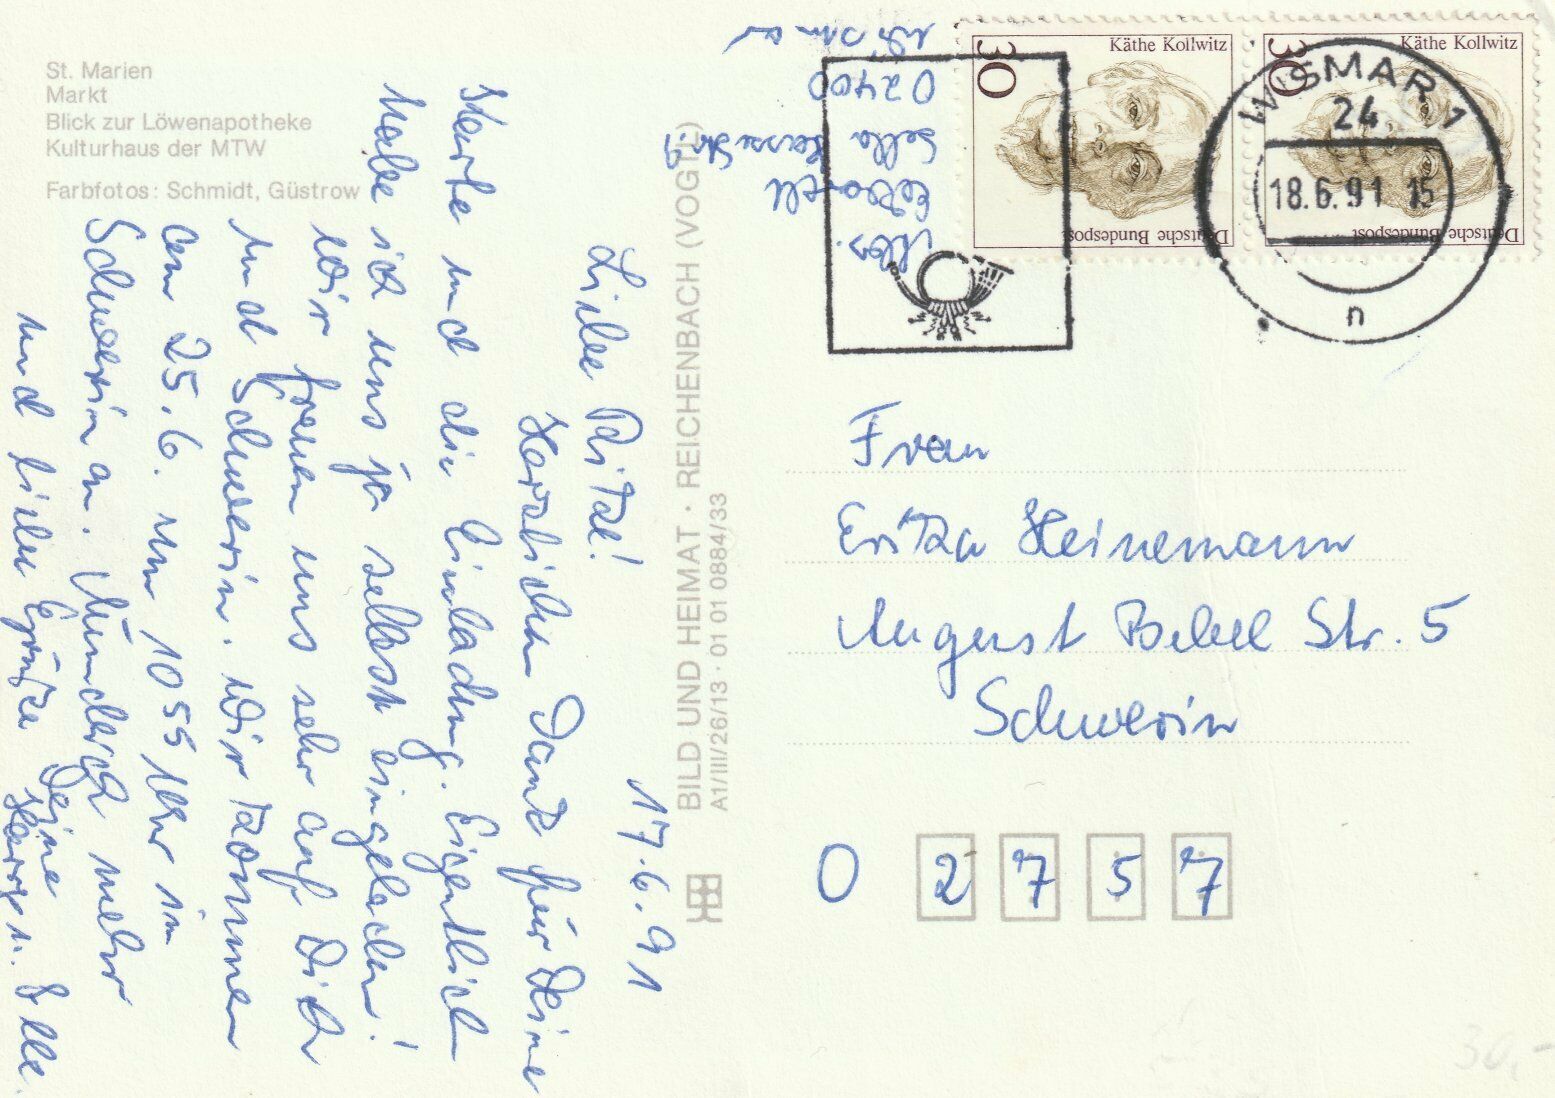 St. Marien
Markt
Blick zur Löwenapotheke
Kulturhaus der MTW
Farbfotos: Schmidt, Güstrow
17.6.91
Liebe Rita!
Herzlichen Dank für Deine
Karte und die Einladung. Eigentlich
habe ich uns ja selbst eingeladen!
Wir freuen uns sehr auf Dich
und Schwerin. Wir kommen
am 25.6. um 10 55 Uhr in
Schwerin an. Mündlich mehr
und liebe Grüße Deine
u. Elle.
BILD UND HEIMAT · REICHENBACH (VOGTL)
A1/III/26/13 · 01 01 0884/33
Abs.
02400
Wismar
30
Käthe Kollwitz
Deutsche Bundespost
30
Käthe Kollwitz
Deutsche Bundespost
WISMAR 1
24
18.6.91 15
n
Frau
Erika Heinemann
August Bebel Str. 5
Schwerin
O 2 7 5 7
30,-